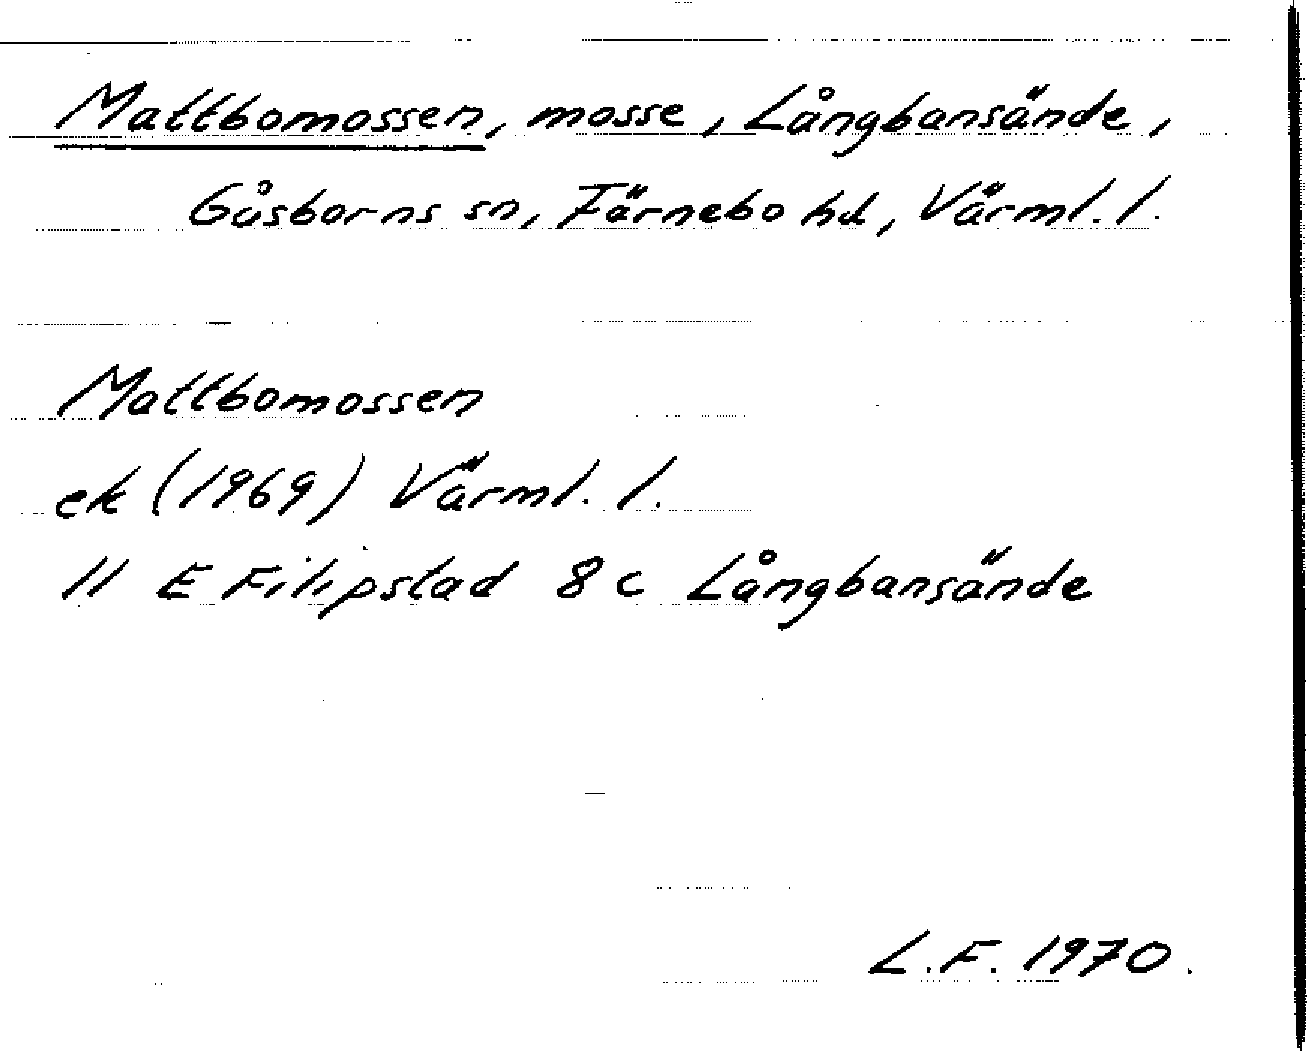 Mattbomossen, mosse, Långbansände,
Gåsborns sn, Färnebo hd, Värml. l.
Mattbomossen
ek (1969) Värml. l.
11 E Filipstad 8 c Långbansände
L.F. 1970.